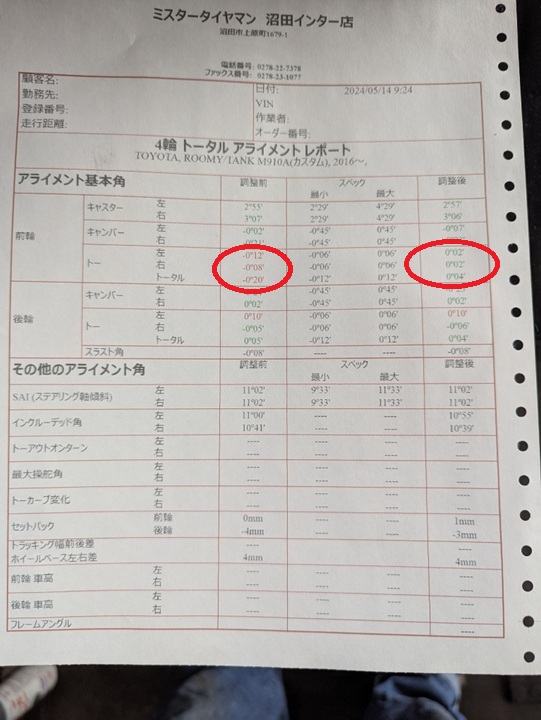 ミスタータイヤマン 沼田インター店
沼田市上原町1679-1
電話番号: 0278-22-7378
ファックス番号: 0278-23-1077
顧客名:
勤務先:
登録番号:
走行距離:
日付: 2024/05/14 9:24
VIN
作業者:
オーダー番号:
4輪 トータル アライメント レポート
TOYOTA, ROOMY/TANK M910A(カスタム), 2016～,
アライメント基本角 調整前 スペック 調整後
最小 最大
前輪
キャスター 左 2°55' 2°29' 4°29' 2°57'
右 3°07' 2°29' 4°29' 3°06'
キャンバー 左 -0°02' -0°45' 0°45' -0°07'
右 -0°45' 0°45'
トー 左 -0°12' -0°06' 0°06' 0°02'
右 -0°08' -0°06' 0°06' 0°02'
トータル -0°20' -0°12' 0°12' 0°04'
後輪
キャンバー 左 -0°45' 0°45'
右 0°02' -0°45' 0°45' 0°02'
トー 左 0°10' -0°06' 0°06' 0°10'
右 -0°05' -0°06' 0°06' -0°06'
トータル 0°05' -0°12' 0°12' 0°04'
スラスト角 -0°08' ---- ---- -0°08'
その他のアライメント角 調整前 スペック 調整後
最小 最大
SAI (ステアリング軸傾斜) 左 11°02' 9°33' 11°33' 11°02'
右 11°02' 9°33' 11°33' 11°02'
インクルーデッド角 左 11°00' ---- ---- 10°55'
右 10°41' ---- ---- 10°39'
トーアウトオンターン 左 ---- ---- ---- ----
右 ---- ---- ---- ----
最大操舵角 左 ---- ---- ---- ----
右 ---- ---- ---- ----
トーカーブ変化 左 ---- ---- ---- ----
右 ---- ---- ---- ----
セットバック 前輪 0mm ---- ---- 1mm
後輪 -4mm ---- ---- -3mm
トラッキング幅前後差 ---- ----
ホイールベース左右差 4mm 4mm
前輪 車高 左 ---- ---- ---- ----
右 ---- ---- ---- ----
後輪 車高 左 ---- ---- ---- ----
右 ---- ---- ---- ----
フレームアングル ----